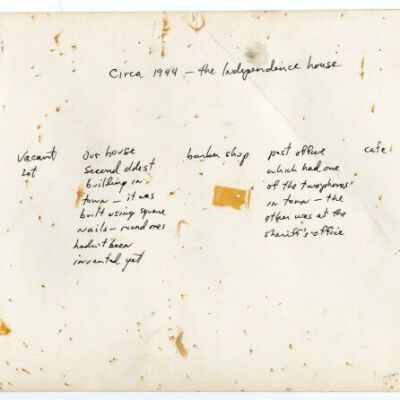 Circa 1944 – the Independence house
Vacant
Lot
Our house
second oldest
building in
town – it was
built using square
nails – round ones
hadn't been
invented yet
barber shop
post office
which had one
of the two phones
in town – the
other was at the
sheriff's office
cafe